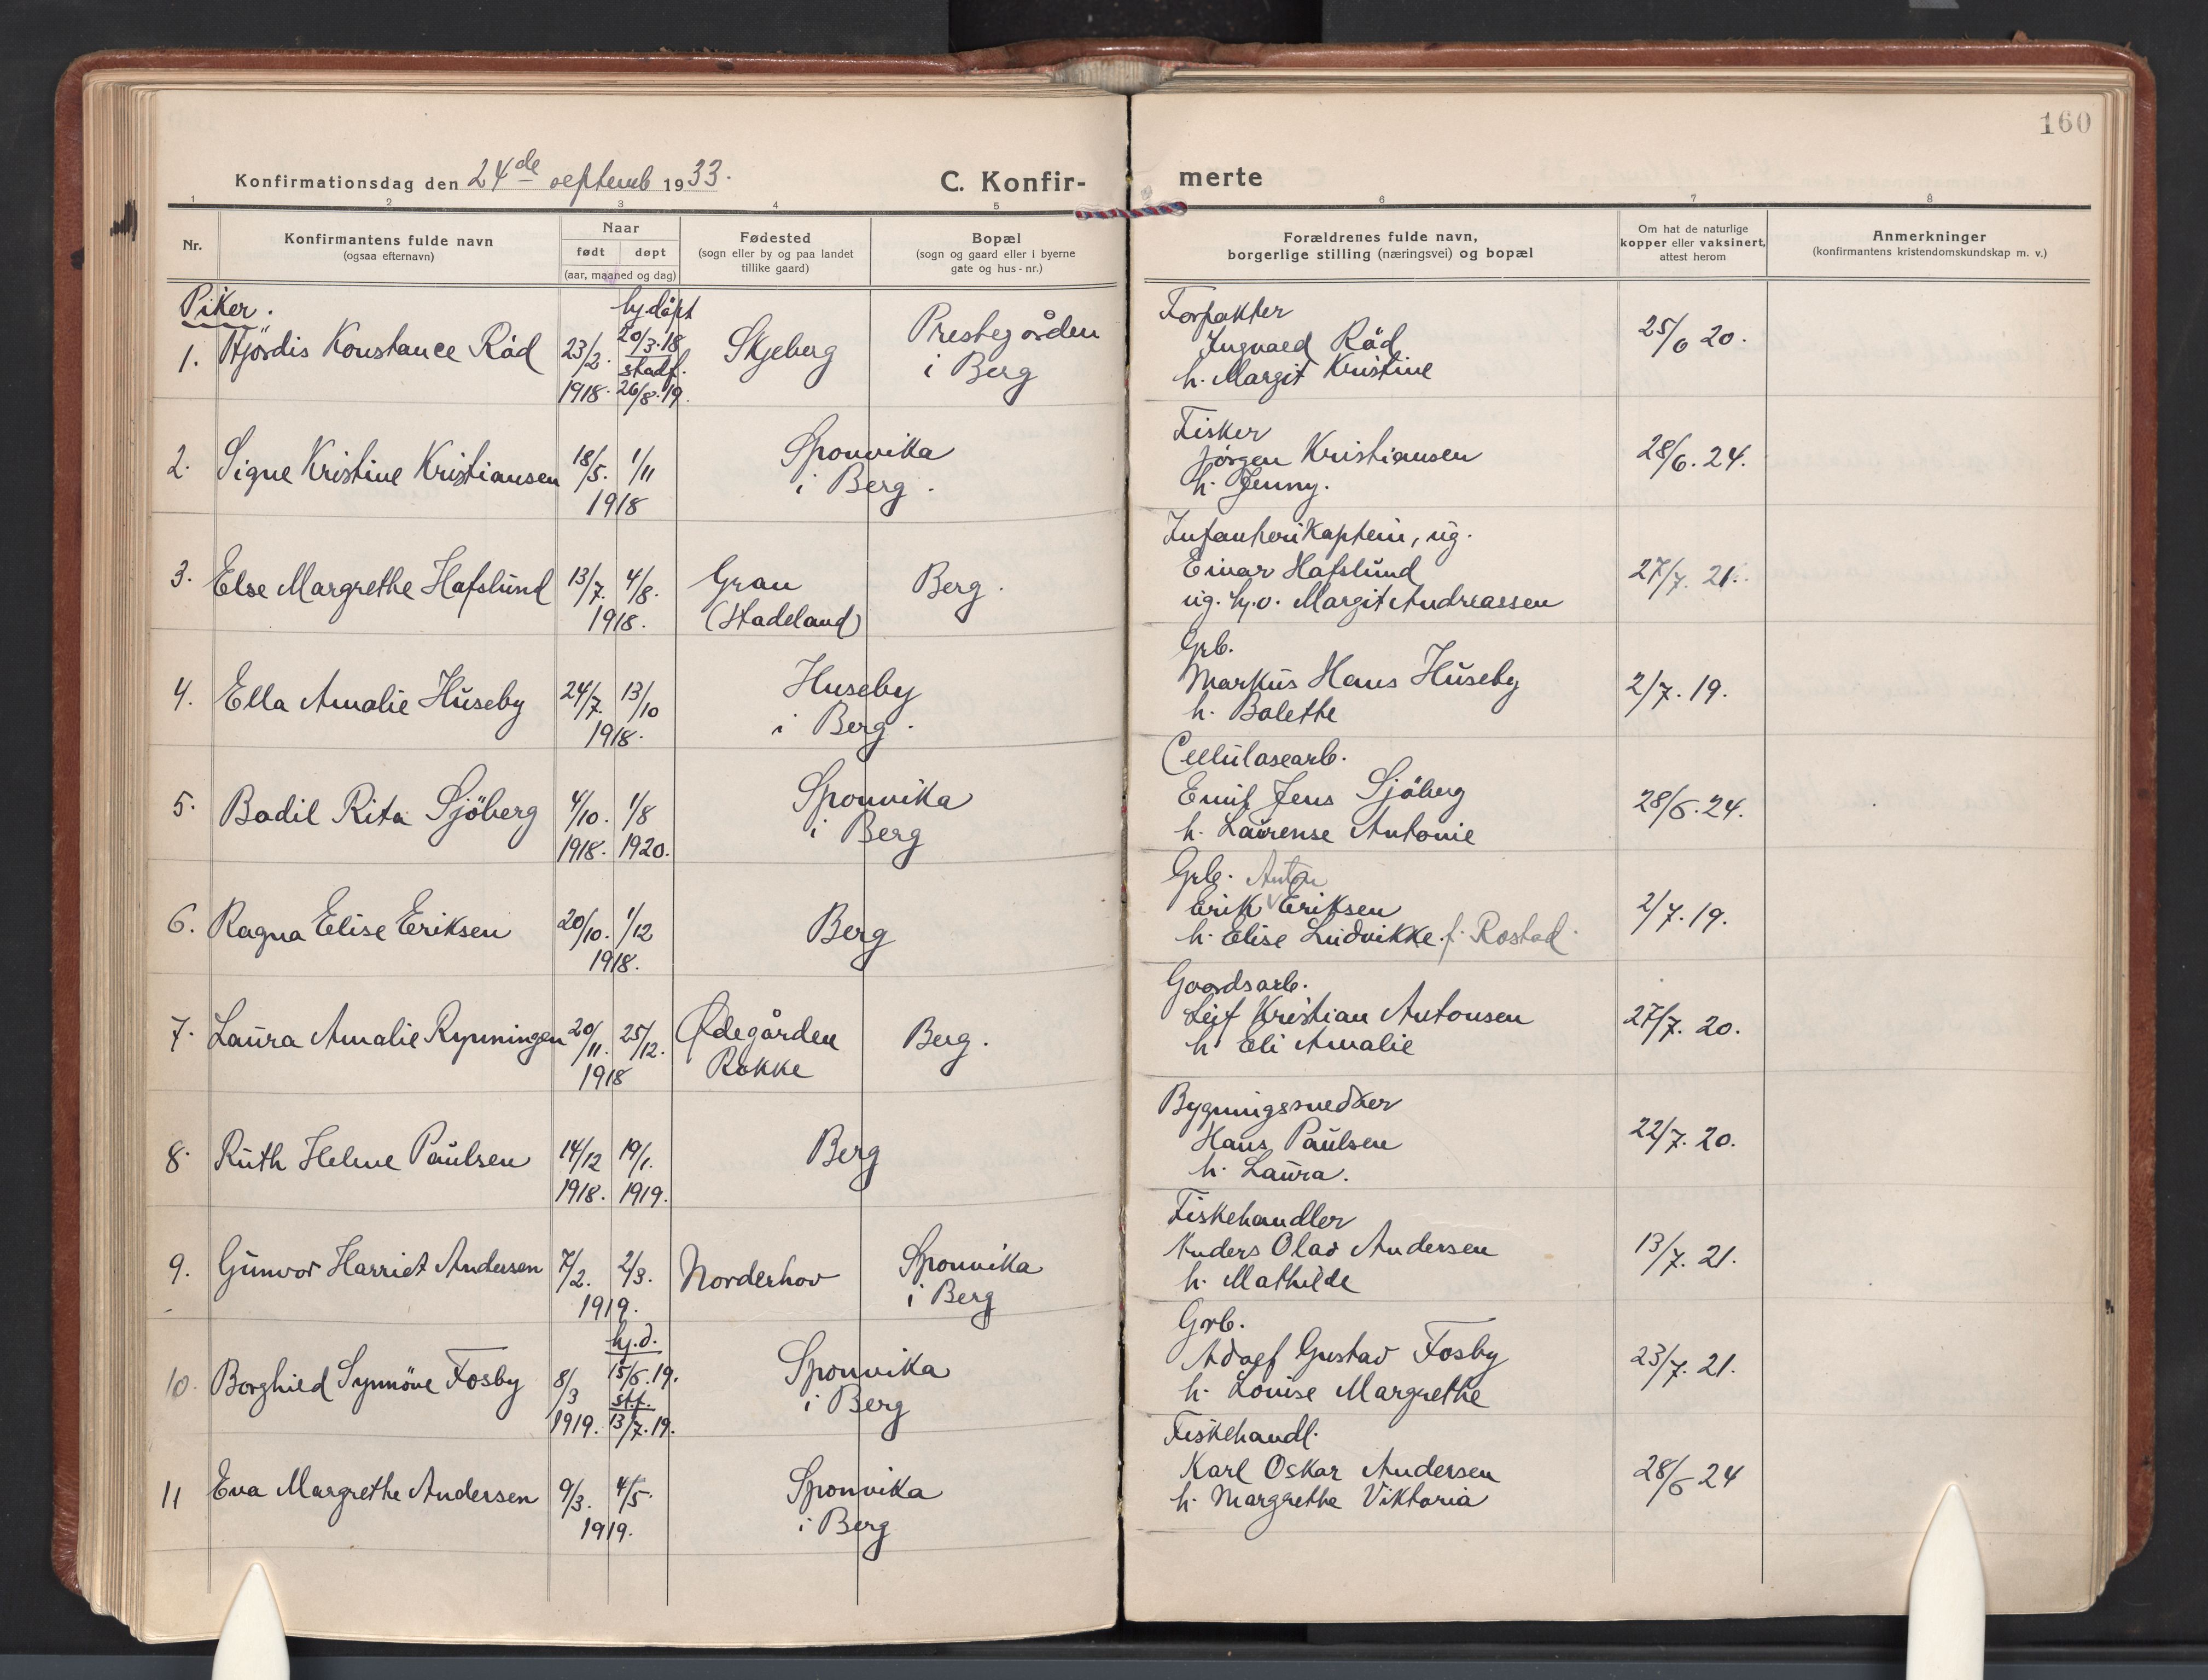 160
Konfirmationsdag den 24de septemb 1933.
C. Konfir-merte
1 2 3 4 5 6 7 8
Nr.
Konfirmantens fulde navn
(ogsaa efternavn)
Naar
født døpt
(aar, maaned og dag)
Fødested
(sogn eller by og paa landet
tillike gaard)
Bopæl
(sogn og gaard eller i byerne
gate og hus-nr.)
Forældrenes fulde navn,
borgerlige stilling (næringsvei) og bopæl
Om hat de naturlige
kopper eller vaksinert,
attest herom
Anmerkninger
(konfirmantens kristendomskundskap m. v.)
Piker.
1. Hjördis Konstance Råd
23/2. 1918.
hj.döpt
20/3.18
stadf.
26/8.19.
Skjeberg
Prestegården
i Berg
Forpakter
Ingvald Råd
h. Margit Kristine
25/6 20.
2. Signe Kristine Kristiansen
18/5. 1/11
1918
Sponvika
i Berg.
Fisker
Jörgen Kristiansen
h. Jenny.
28/6. 24.
3. Else Margrethe Hafslund
13/7. 4/8.
1918.
Gran
(Hadeland)
Berg.
Infanterikaptein, ug.
Einar Hafslund
ug. hj.v. Margit Andreassen
27/7. 21.
4. Ella Amalie Huseby
24/7. 13/10
1918.
Huseby
i Berg.
Grb.
Markus Hans Huseby
h. Bolethe
2/7. 19.
5. Bodil Rita Sjöberg
4/10. 1/8
1918. 1920.
Sponvika
i Berg
Cellulosearb.
Emil Jens Sjöberg
h. Laurense Antonie
28/6. 24.
6. Ragna Elise Eriksen
20/10. 1/12
1918.
Berg
Grb. Anton
Erik Eriksen
h. Elise Ludvikke f. Rostad.
2/7. 19.
7. Laura Amalie Rynningen
20/11. 25/12.
1918
Ødegården
Rokke
Berg.
Gaardsarb.
Leif Kristian Antonsen
h. Eli Amalie
27/7. 20.
8. Ruth Helene Paulsen
14/12 19/1.
1918. 1919.
Berg
Bygningssnedker
Hans Paulsen
h. Laura.
22/7. 20.
9. Gunvor Harriet Andersen
7/2. 2/3.
1919.
Norderhov
Sponvika
i Berg
Fiskehandler
Anders Olav Andersen
h. Mathilde
13/7. 21.
10. Borghild Synnöve Fosby
8/3
1919.
hj.d.
15/6.19.
stf.
13/7.19.
Sponvika
i Berg
Grb.
Adolf Gustav Fosby
h. Louise Margrethe
23/7. 21.
11 Eva Margrethe Andersen
9/3. 4/5.
1919.
Sponvika
i Berg
Fiskehandl.
Karl Oskar Andersen
h. Margrethe Viktoria
28/6 24